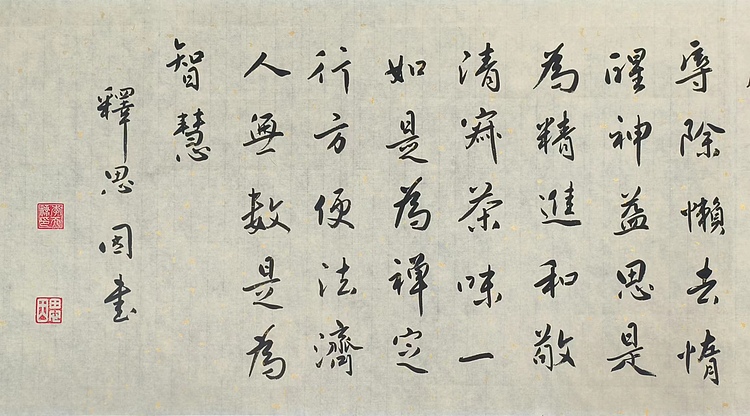 辱除懶去惰
醒神益思是
為精進和敬
清寂茶味一
如是為禅定
行方便法濟
人無数是為
智慧
釋思因書